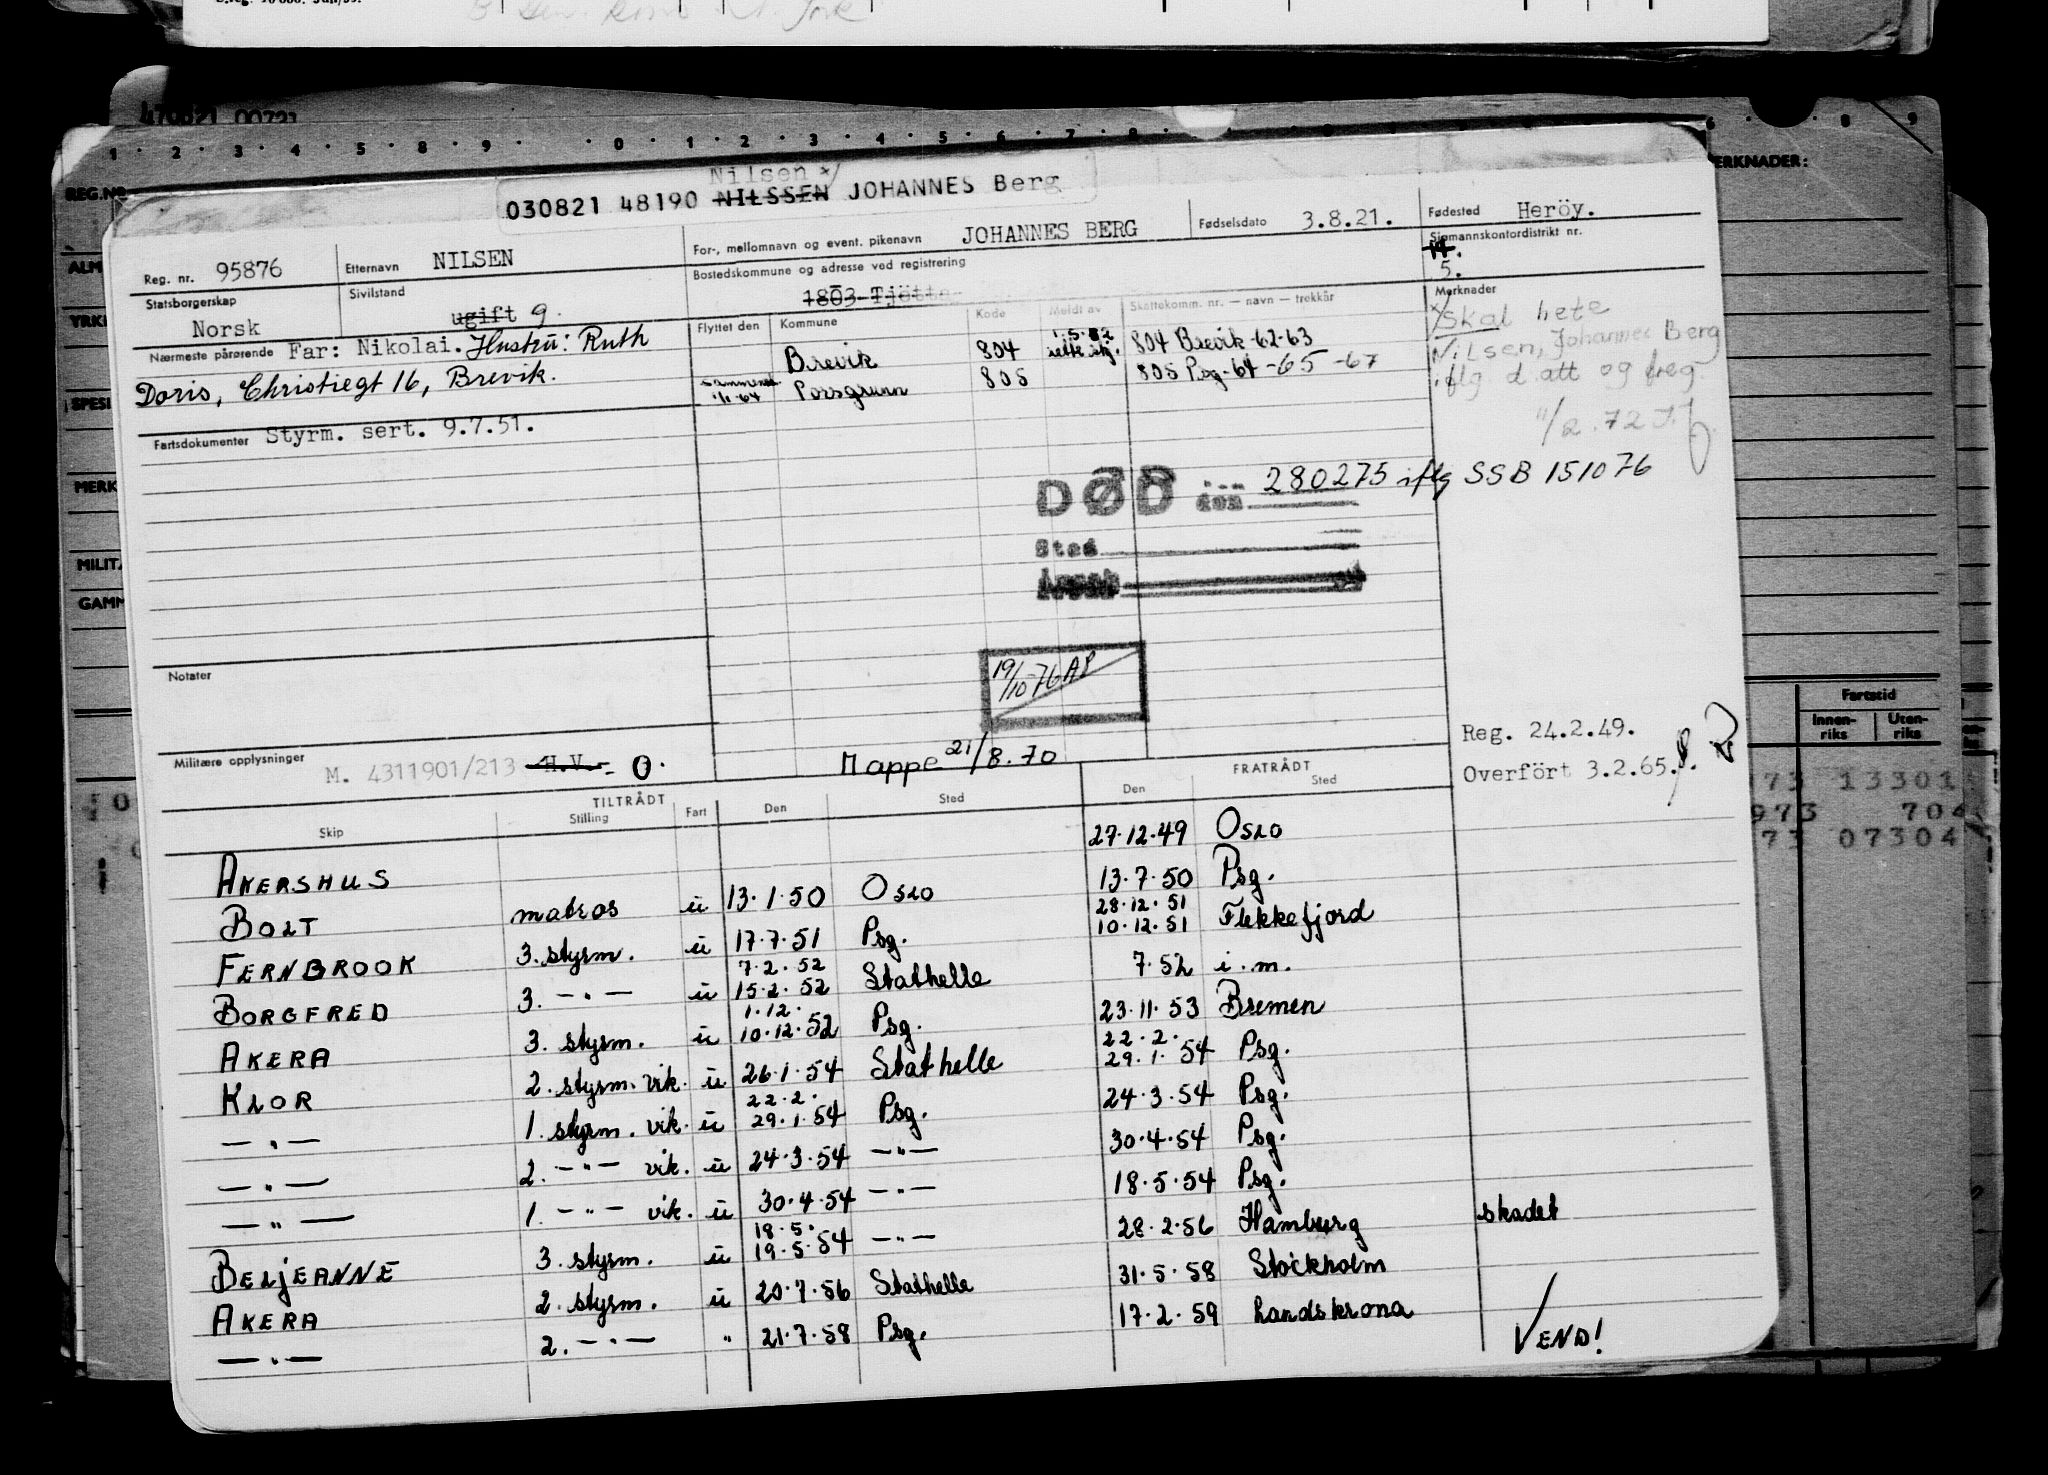 470821 00721
1 · 2 · 3 · 4 · 5 · 8 · 9 · · 0 · 1 · 2 · 3 · 4 · 5 · 6 · 7 · 8
REG.NR.
ERKNADER:
Nilsen x/
030821 48190 NILSSEN JOHANNES Berg
Reg. nr. 95876
Etternavn NILSEN
For-, mellomnavn og event. pikenavn JOHANNES BERG
Fødselsdato 3.8.21.
Fødested Heröy.
Statsborgerskap Norsk
Sivilstand ugift g.
Bostedskommune og adresse ved registrering
1803 Tjötta
Sjømannskontordistrikt nr.
14.
5.
Nærmeste pårørende Far: Nikolai. Hustru: Ruth
Doris, Christiegt 16, Brevik.
Flyttet den Kommune Kode Meldt av Skattekomm. nr. — navn — trekkår
Brevik 804 804 Brevik-62-63
1-1-64 Porsgrunn 805 805 Psg-64-65-67
Merknader
x/ skal hete
Nilsen, Johannes Berg
iflg d.att og freg
11/2.72
Fartsdokumenter Styrm. sert. 9.7.51.
DØD den 280275 iflg SSB 151076
Sted
Notater
19/10-76 AP
Militære opplysninger M. 4311901/213 H.V. - 0.
Mappe 21/8.70
Reg. 24.2.49.
Overfört 3.2.65.
TILTRÅDT FRATRÅDT
Skip Stilling Fart Den Sted Den Sted
AKERSHUS 27.12.49 Oslo
BOLT matros u 13.1.50 Oslo 13.7.50 Psg.
28.12.51
FERNBROOK 3. styrm. u 17.7.51 Psg. 10.12.51 Flekkefjord
7.2.52
BORGFRED 3. —"— u 15.2.52 Stathelle 7.52 i.m.
1.12.
AKERA 3. styrm. u 10.12.52 Psg. 23.11.53 Bremen
22.2.
KLOR 2. styrm. vik. u 26.1.54 Stathelle 29.1.54 Psg.
22.2.
—"— 1. styrm. vik. u 29.1.54 Psg. 24.3.54 Psg.
—"— 2. —"— vik. u 24.3.54 —"— 30.4.54 Psg.
—"— 1. —"— vik. u 30.4.54 —"— 18.5.54 Psg.
18.5.
BELJEANNE 3. styrm. u 19.5.54 —"— 28.2.56 Hamburg skadet
AKERA 2. styrm. u 20.7.56 Stathelle 31.5.58 Stockholm
—"— 2. —"— " 21.7.58 Psg. 17.2.59 Landskrona
VEND!
Fartstid
Innen-riks Uten-riks
973 13301
973 704
73 07304